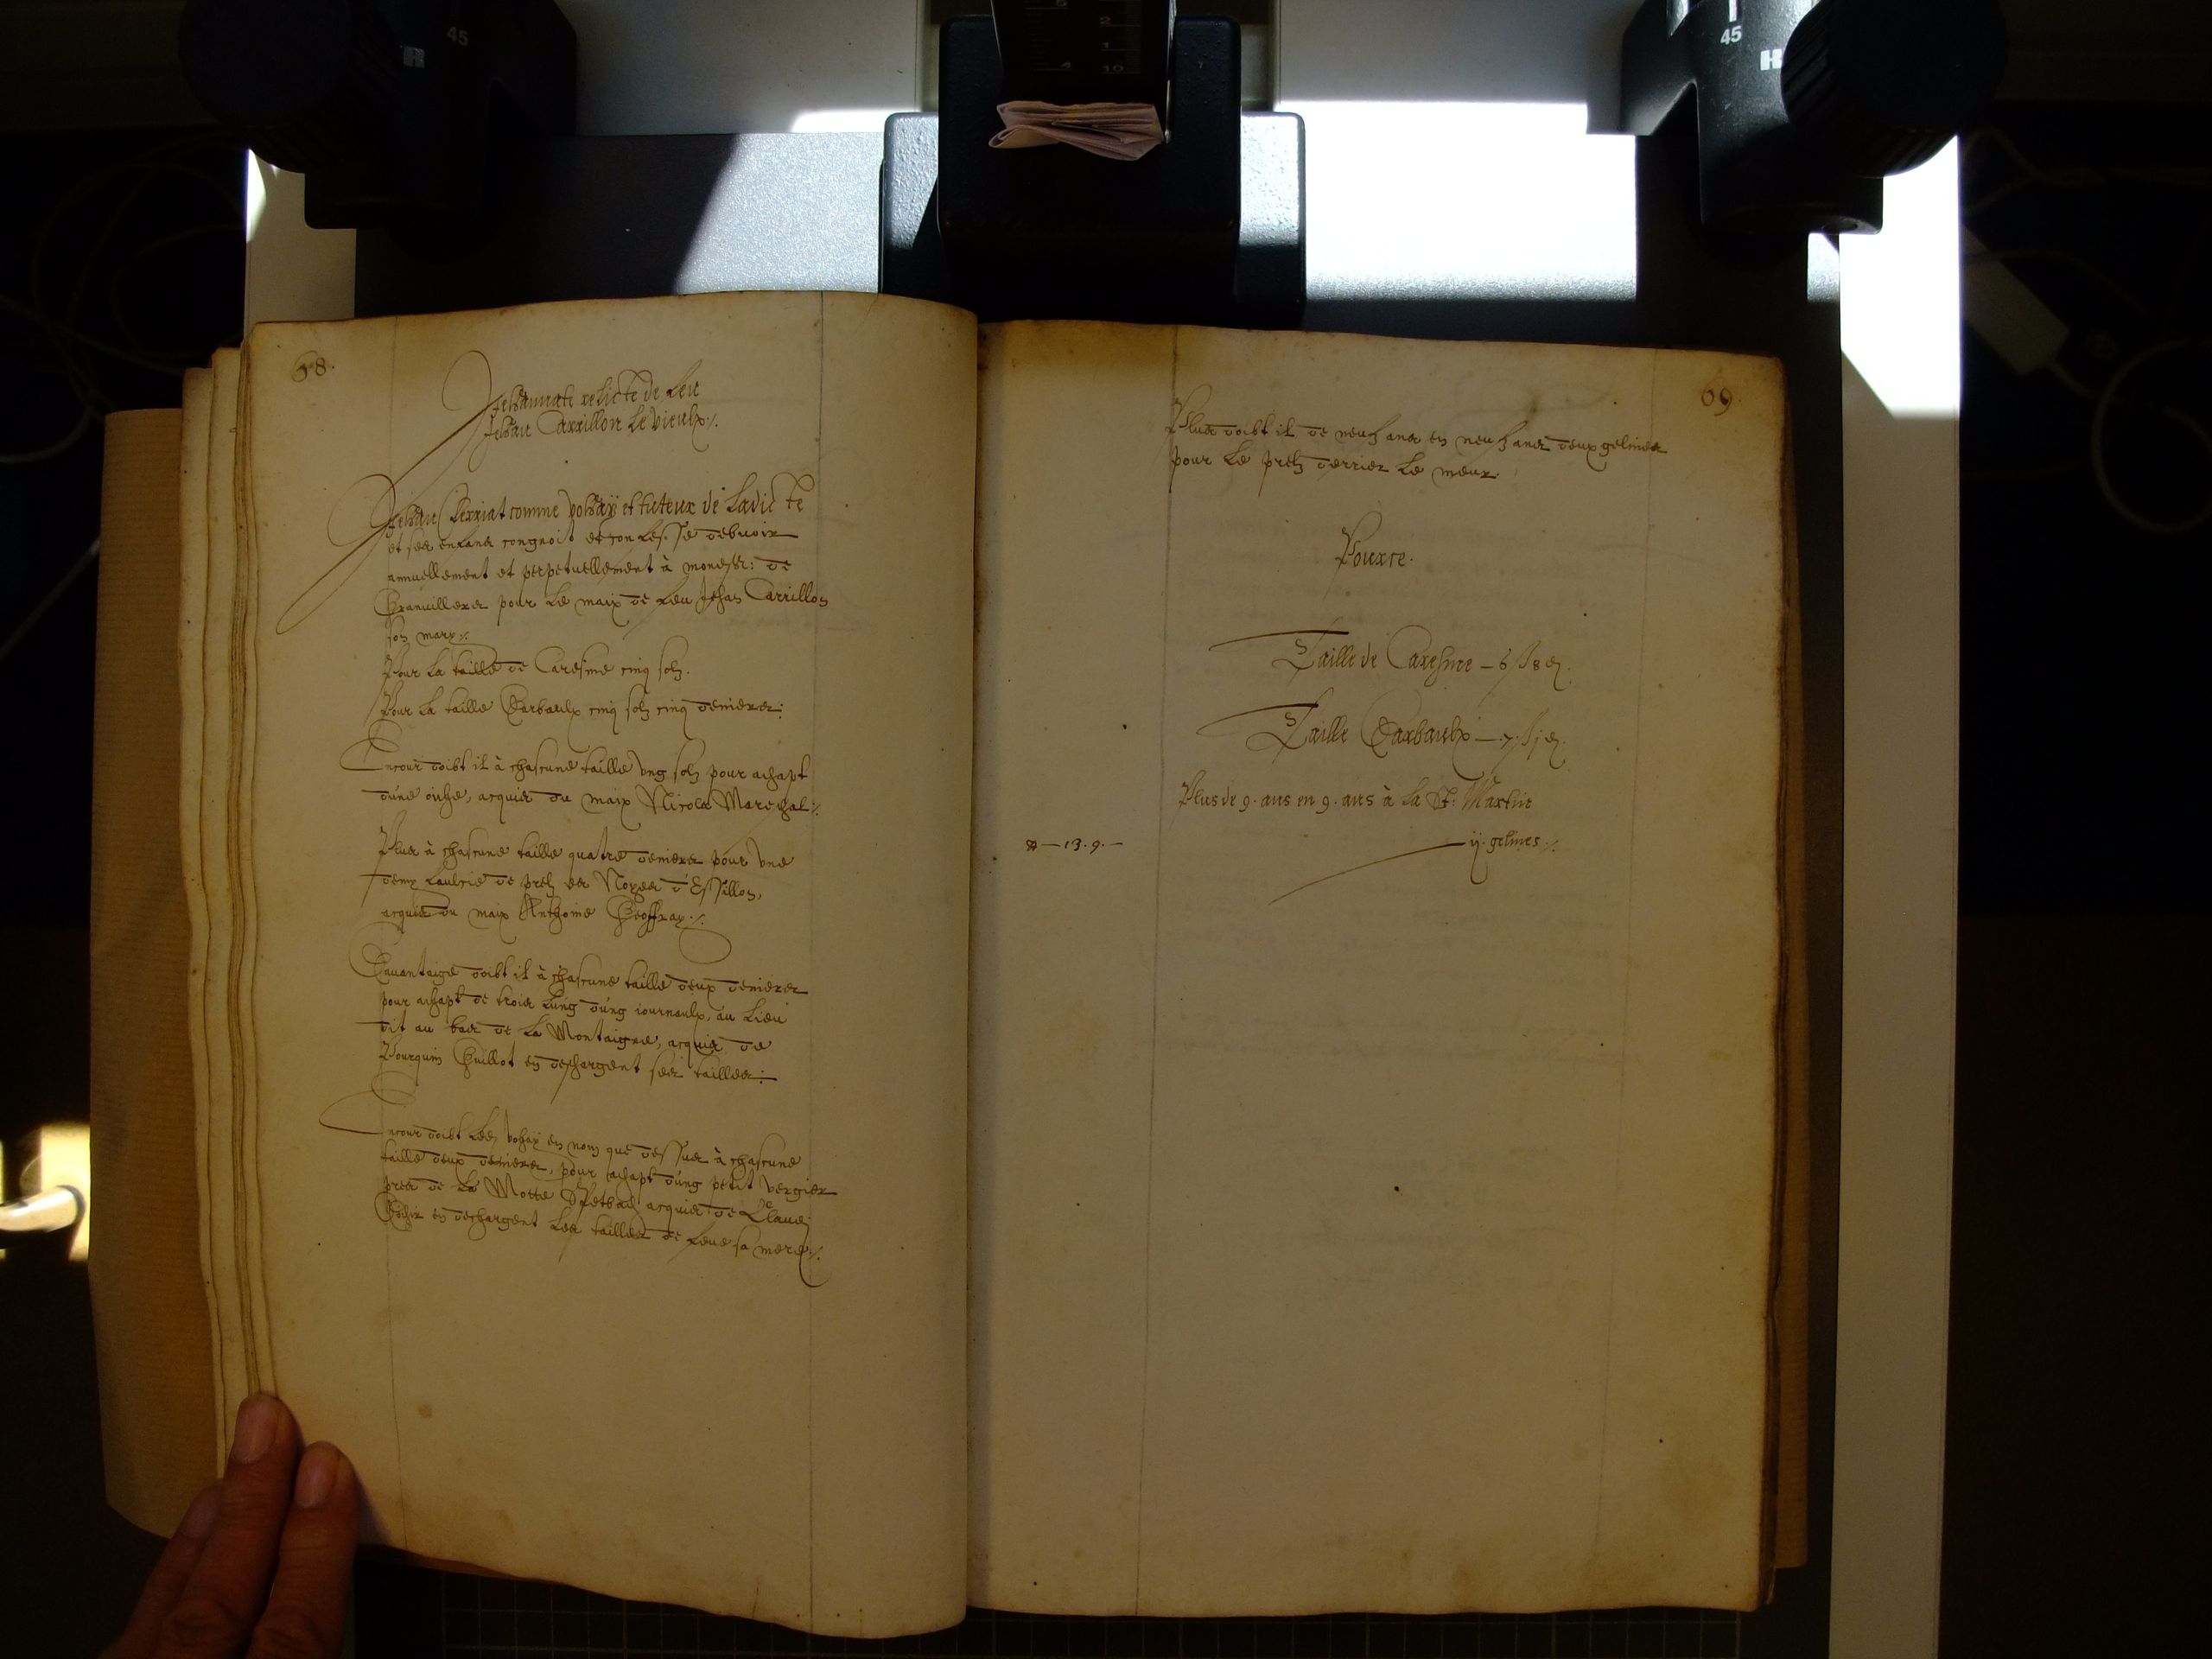 68.
Jehannate relicte de feu
Jehan Carrillon le vieulx
Jehan Perriat comme vohay et tuteur de ladicte
et ses enfans congnoit et confesse debuoir
annuellement et perpetuellement à monsr: de
Granuillers pour le maix de feu Jehan Carrillon
son mary
Pour la taille de Caresme cinq solz.
Pour la taille Darbaulx cinq solz cinq deniers:
Encour doibt il à chascune taille vng solz pour achapt
d'une oiche, acquis du maix Nicolas Mareschal
Plus à chascune taille quatre deniers pour vne
demy faulcie de prelz es Noyes d'Essillon,
acquis du maix Anthoine Geoffray
Dauantaige doibt il à chascune taille deux deniers
pour achapt de trois lung d'ung iournaulx, au lieu
dit au bas de la Montaigne, acquis de
Pourquin Guillot en deschargent ses tailles:
Encour doibt led. vohay en nom que dessus à chascune
taille deux deniers, pour achapt d'ung petit vergier
pres de la Motte acquis de Claude
en deschargent les tailles de feue sa mere
69
Plus doibt il de neufz ans en neufz ans deux gelines
pour le prelz derrier le meur.
Pourte.
Taille de Caresme — 6 s 8 d.
Taille Darbaulx — 7 s 1 d.
Plus de 9. ans en 9. ans à la St: Martin
— 13. 9. —
ij. gelines